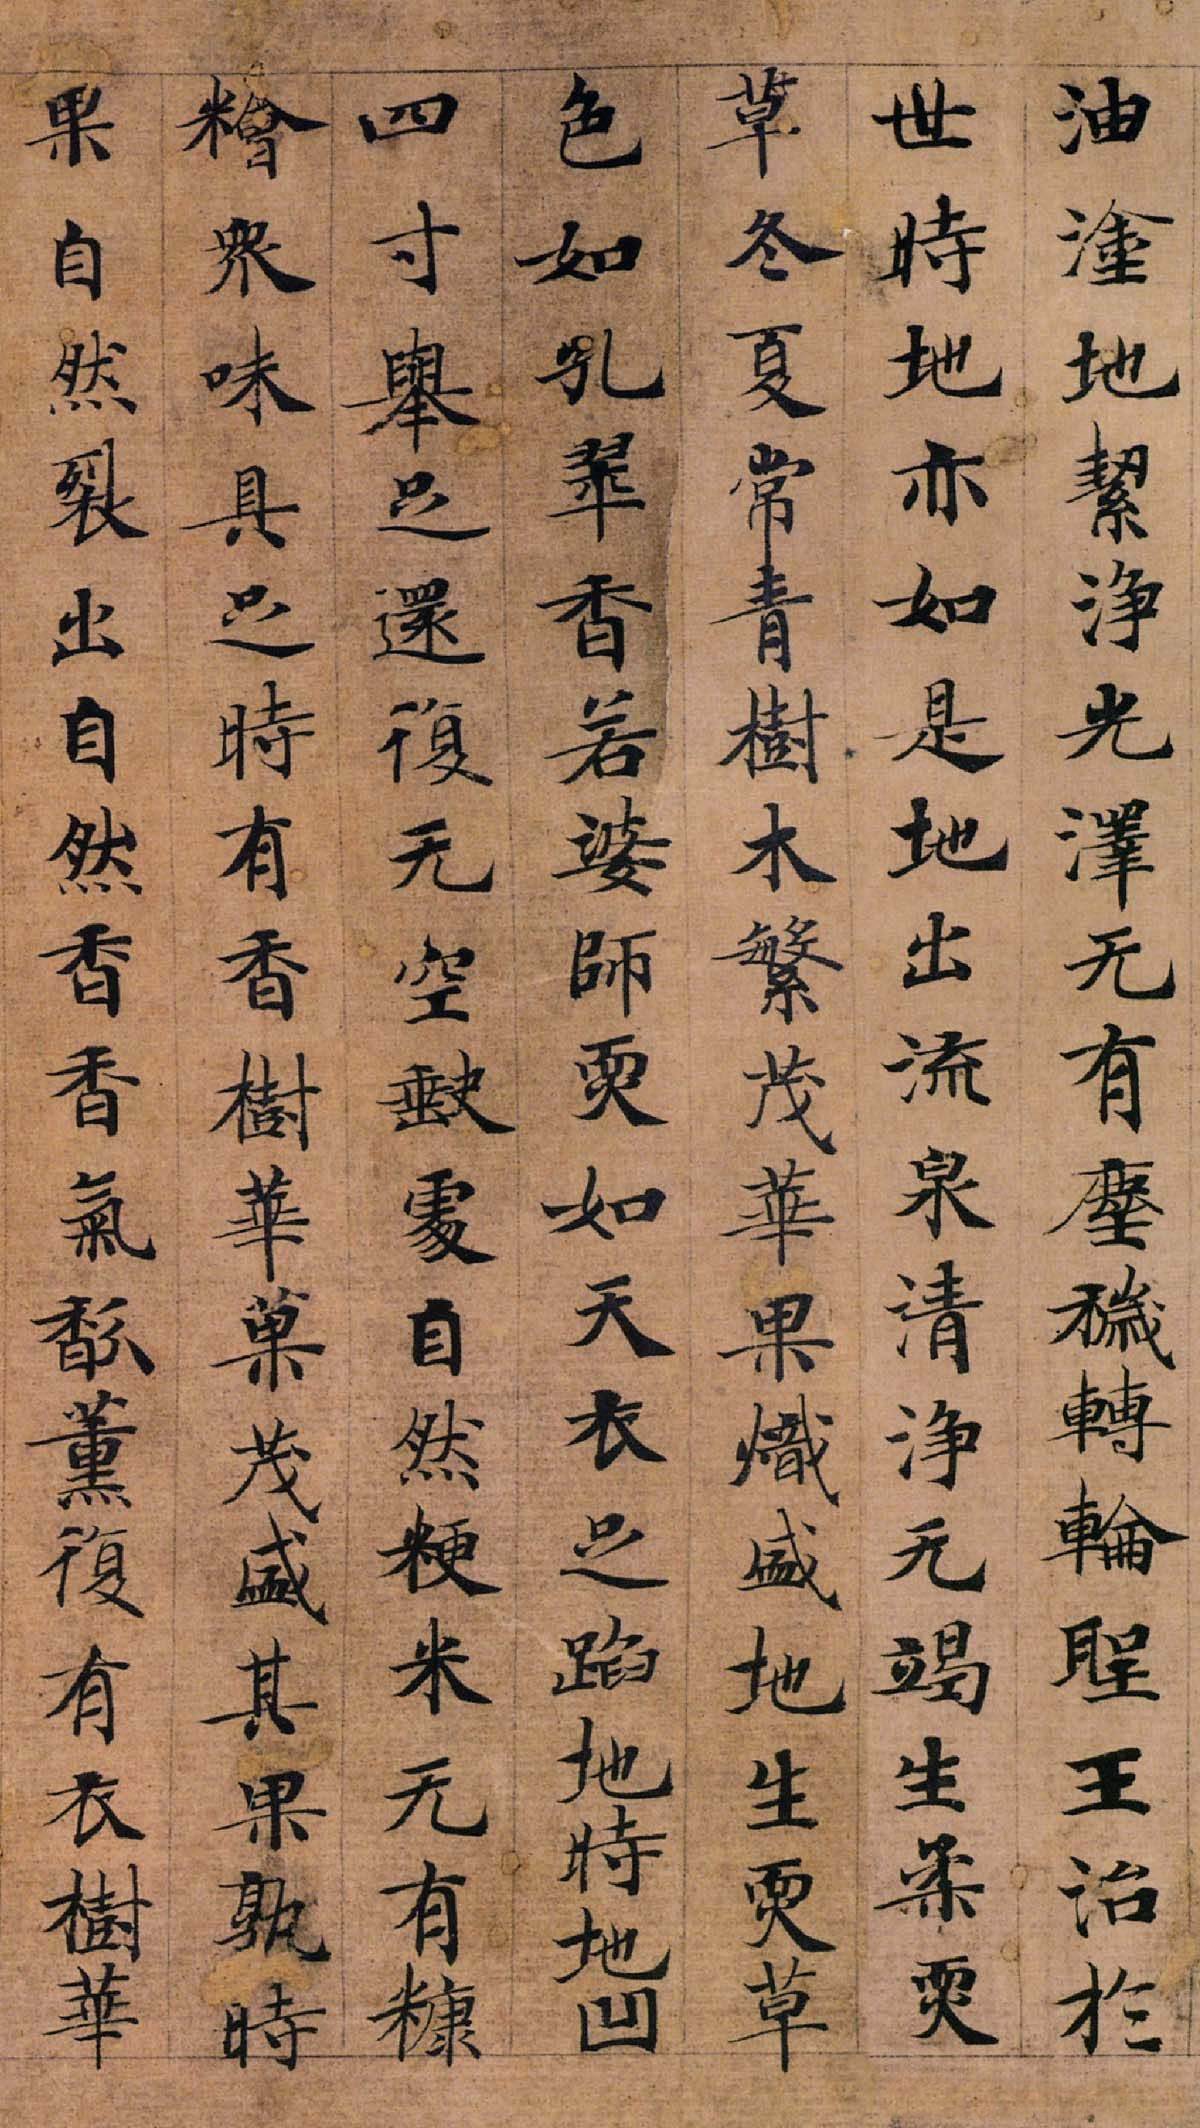 油塗地絜浄光澤无有塵穢轉輪聖王治於
世時地亦如是地出流泉清浄无竭生柔耎
草冬夏常青樹木繁茂華果熾盛地生耎草
色如孔翠香若婆師耎如天衣足蹈地時地凹
四寸舉足還復无空缺處自然粳米无有糠
糩衆味具足時有香樹華菓茂盛其果熟時
果自然裂出自然香香氣馛薰復有衣樹華